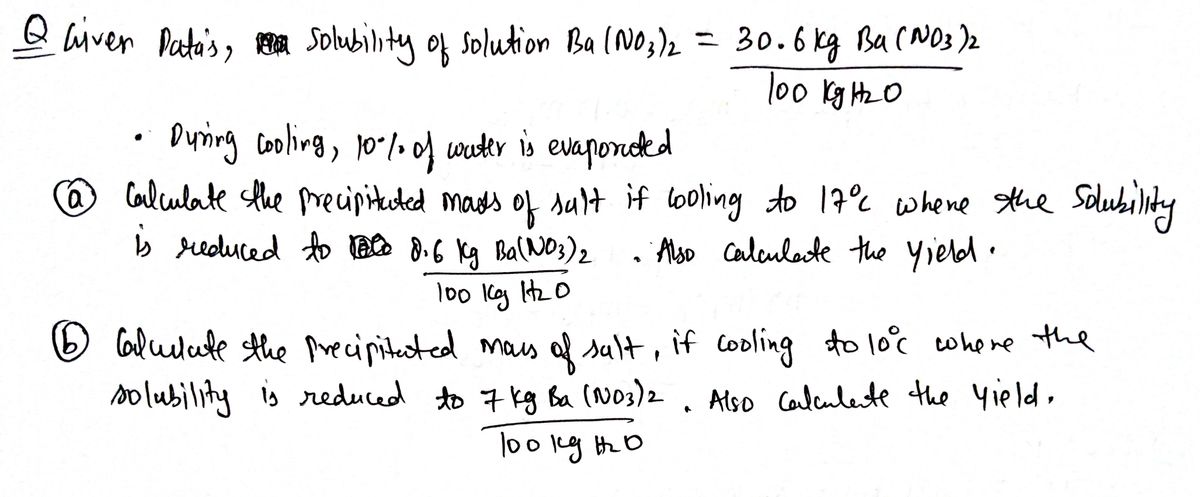 Q Given Data's, Solubility of Solution Ba(NO3)2 = 30.6 kg Ba(NO3)2
100 kg H2O
• During cooling, 10% of water is evaporated
(a) Calculate the precipitated mass of salt if cooling to 17°C where the Solubility
is reduced to 8.6 kg Ba(NO3)2 . Also calculate the yield.
100 kg H2O
(b) Calculate the precipitated mass of salt, if cooling to 10°C where the
solubility is reduced to 7 kg Ba(NO3)2 . Also calculate the yield.
100 kg H2O